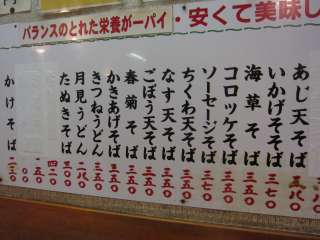 バランスのとれた栄養が一パイ・安くて美味し
あじ天そば 三八〇
いかげそば 三七〇
海草そば 三五〇
コロッケそば 三五〇
ソーセージそば 三七〇
ちくわ天そば 三五〇
なす天そば 三五〇
ごぼう天そば 三五〇
春菊そば 三五〇
かきあげそば 三五〇
きつねうどん 三五〇
月見うどん 二八〇
たぬきそば 三〇〇
四二〇
かけそば 二三〇